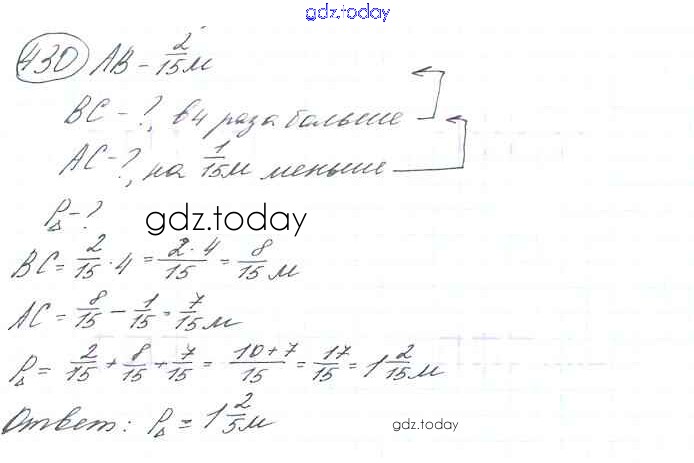 gdz.today
430 AB - 2/15 м
BC - ?, в 4 раза больше
AC - ?, на 1/15 м меньше
P△ - ?
gdz.today
BC = 2/15 · 4 = 2·4/15 = 8/15 м
AC = 8/15 - 1/15 = 7/15 м
P△ = 2/15 + 8/15 + 7/15 = 10+7/15 = 17/15 = 1 2/15 м
Ответ: P△ = 1 2/5 м
gdz.today